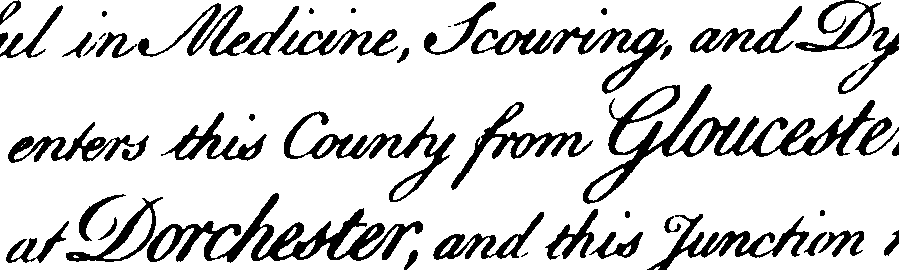 in Medicine, Scouring, and
enters this County from Gloucester
at Dorchester, and this Junction